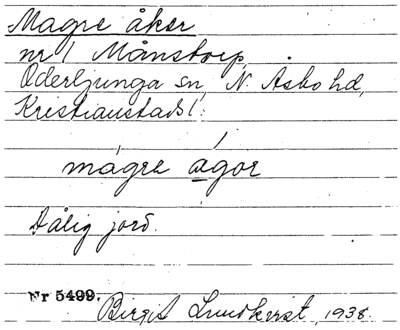 Magre åker
nr 1 Månstorp,
Oderljunga sn, N. Åsbo hd,
Kristianstads l.
mágre ágor
Dålig jord.
Nr 5499.
Birgit Lundkvist, 1938.